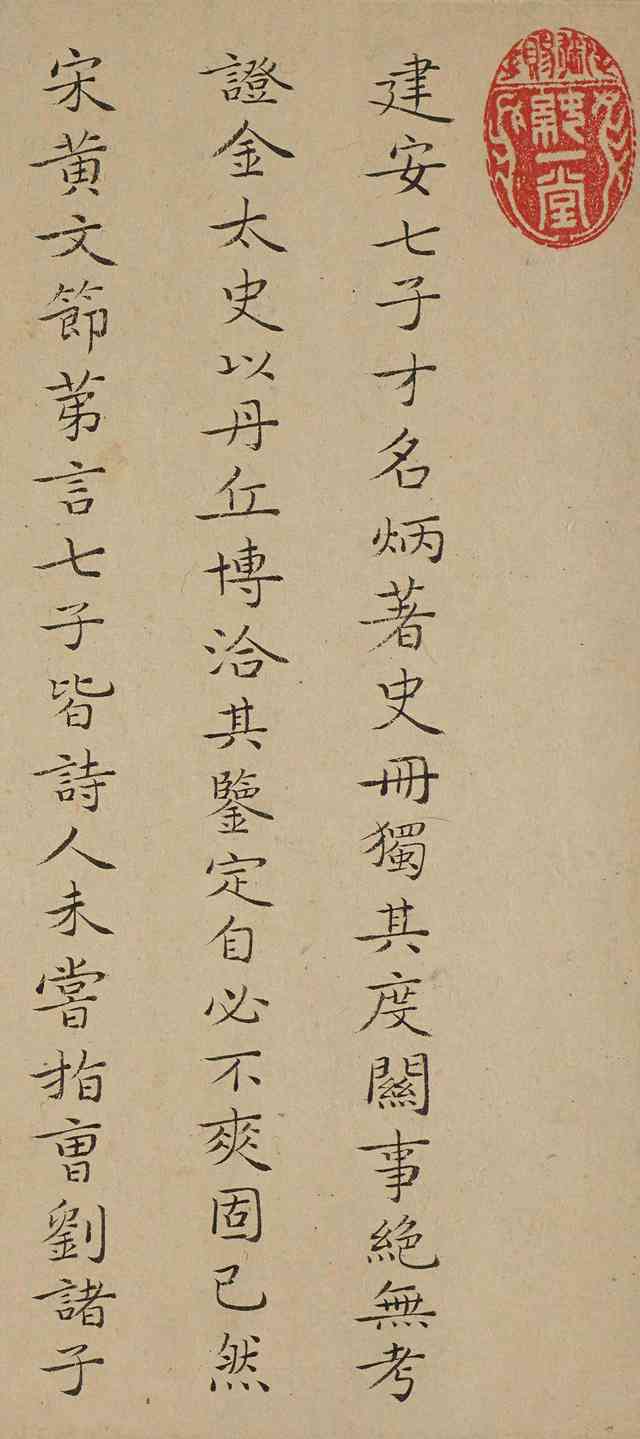 建安七子才名炳著史冊獨其度關事絕無考
證金太史以丹丘博洽其鑒定自必不爽固已然
宋黃文節苐言七子皆詩人未嘗指曹劉諸子